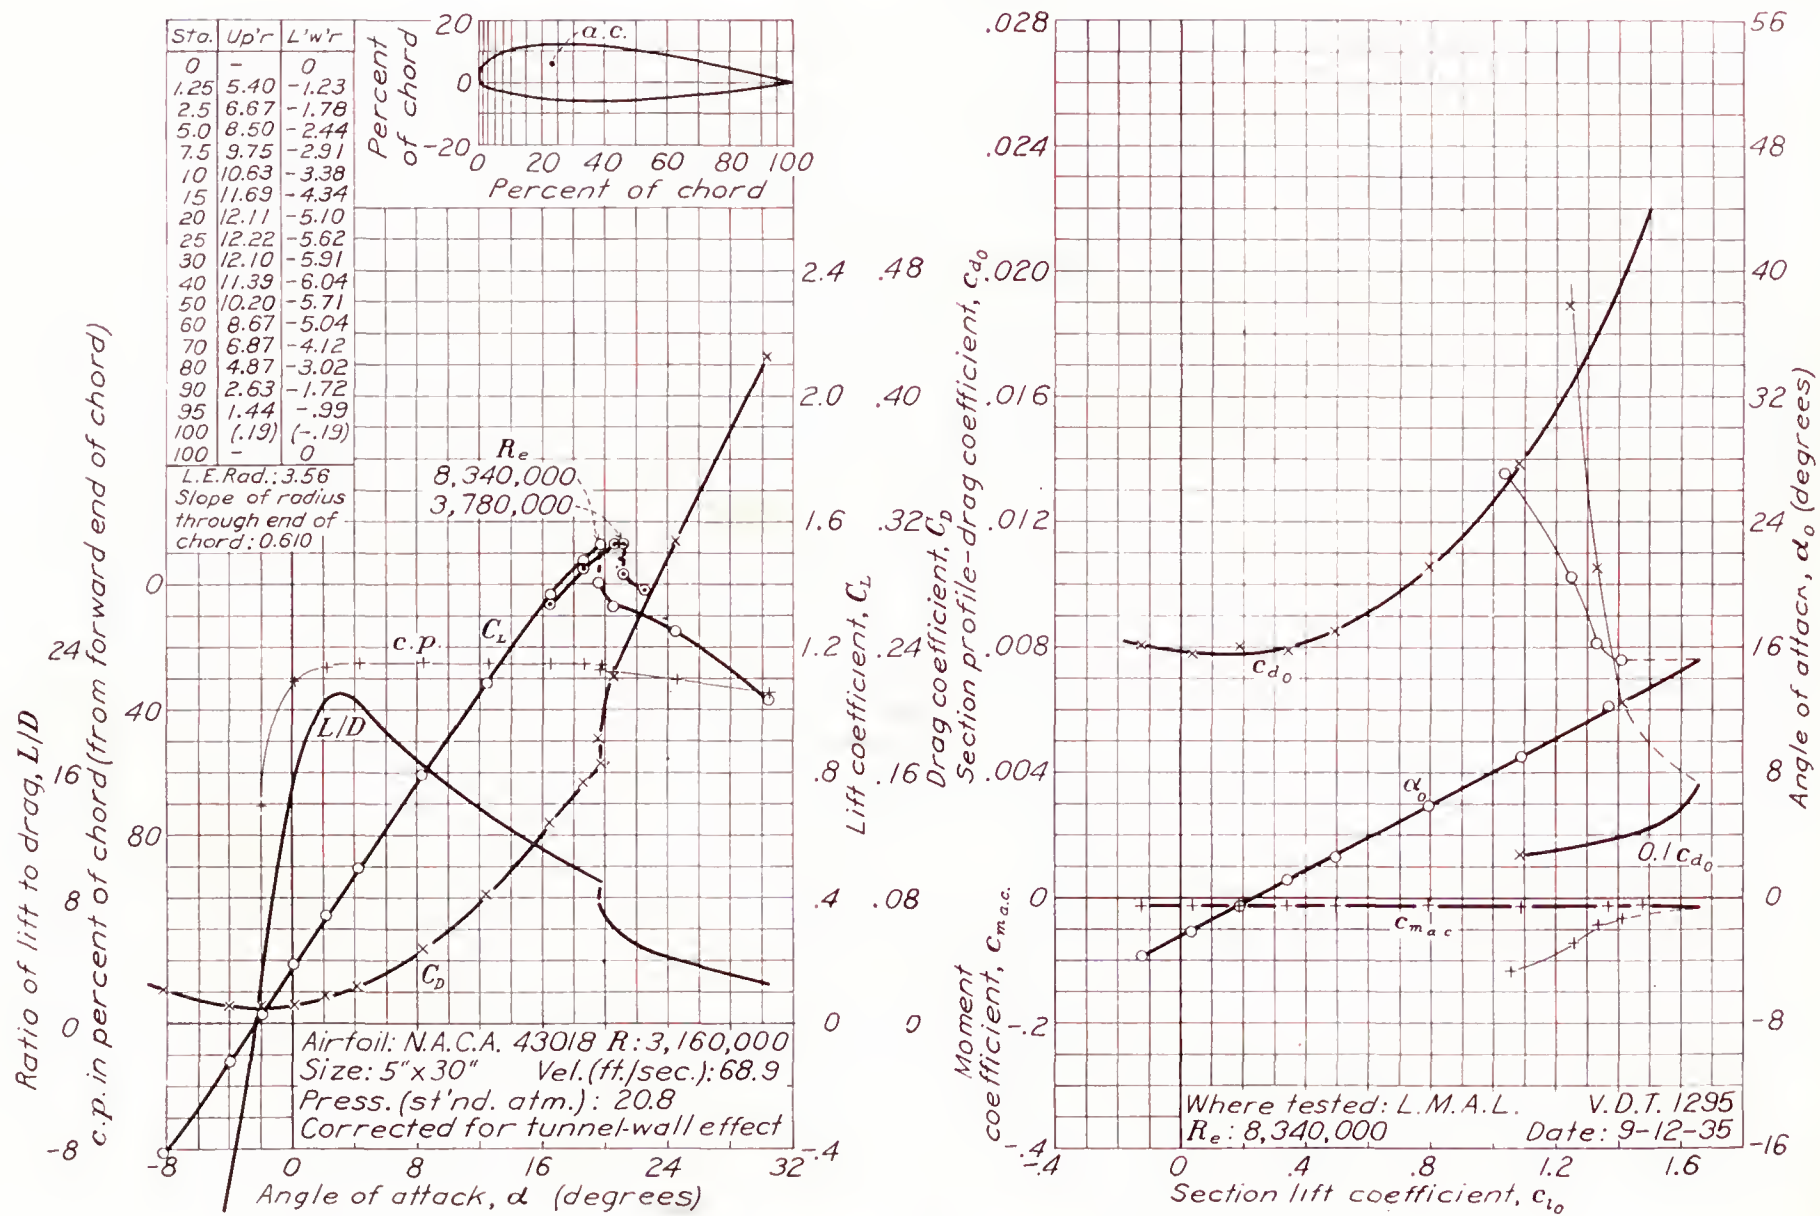 Sta. Up'r L'w'r
0 - 0
1.25 5.40 -1.23
2.5 6.67 -1.78
5.0 8.50 -2.44
7.5 9.75 -2.91
10 10.63 -3.38
15 11.69 -4.34
20 12.11 -5.10
25 12.22 -5.62
30 12.10 -5.91
40 11.39 -6.04
50 10.20 -5.71
60 8.67 -5.04
70 6.87 -4.12
80 4.87 -3.02
90 2.63 -1.72
95 1.44 -.99
100 (.19) (-.19)
100 - 0
L.E.Rad.:3.56
Slope of radius
through end of
chord:0.610
Percent
of chord
20
0
-20
a.c.
0 20 40 60 80 100
Percent of chord
Ratio of lift to drag, L/D
24
16
8
0
-8
c.p. in percent of chord (from forward end of chord)
0
40
80
R_e
8,340,000
3,780,000
C_L
c.p.
L/D
C_D
2.4
2.0
1.6
1.2
.8
.4
0
-.4
Lift coefficient, C_L
.48
.40
.32
.24
.16
.08
0
Drag coefficient, C_D
Airfoil: N.A.C.A. 43018 R:3,160,000
Size: 5"x30" Vel.(ft./sec.):68.9
Press.(st'nd. atm.): 20.8
Corrected for tunnel-wall effect
-8 0 8 16 24 32
Angle of attack, α (degrees)
Section profile-drag coefficient, c_{d_0}
.028
.024
.020
.016
.012
.008
.004
0
-.2
-.4
Moment
coefficient, c_{m_{a.c.}}
c_{d_0}
α_0
0.1 c_{d_0}
c_{m a.c}
56
48
40
32
24
16
8
0
-8
-16
Angle of attack, α_0 (degrees)
Where tested: L.M.A.L. V.D.T. 1295
R_e: 8,340,000 Date: 9-12-35
-.4 0 .4 .8 1.2 1.6
Section lift coefficient, c_{l_0}